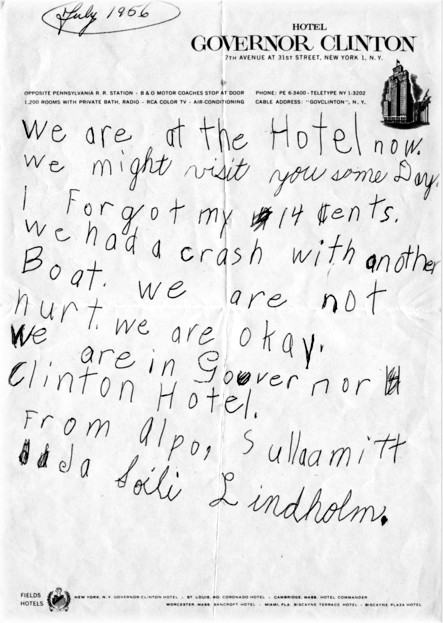 July 1956
HOTEL
GOVERNOR CLINTON
7TH AVENUE AT 31ST STREET, NEW YORK 1, N.Y.
OPPOSITE PENNSYLVANIA R. R. STATION - B & G MOTOR COACHES STOP AT DOOR
1,200 ROOMS WITH PRIVATE BATH, RADIO - RCA COLOR TV - AIR-CONDITIONING
PHONE: PE 6-3400 - TELETYPE NY 1-3202
CABLE ADDRESS: "GOVCLINTON", N. Y.
We are at the Hotel now.
We might visit you some Day.
I Forgot my 14 ¢ents.
We had a crash with another
Boat. We are not
hurt. We are okay.
We are in Goovernor
Clinton Hotel.
From Alpo, Sullaamitt
ja Soili Lindholm.
FIELDS
HOTELS
NEW YORK, N.Y. GOVERNOR CLINTON HOTEL - ST. LOUIS, MO. CORONADO HOTEL - CAMBRIDGE, MASS. HOTEL COMMANDER
WORCESTER, MASS. BANCROFT HOTEL - MIAMI, FLA. BISCAYNE TERRACE HOTEL - BISCAYNE PLAZA HOTEL